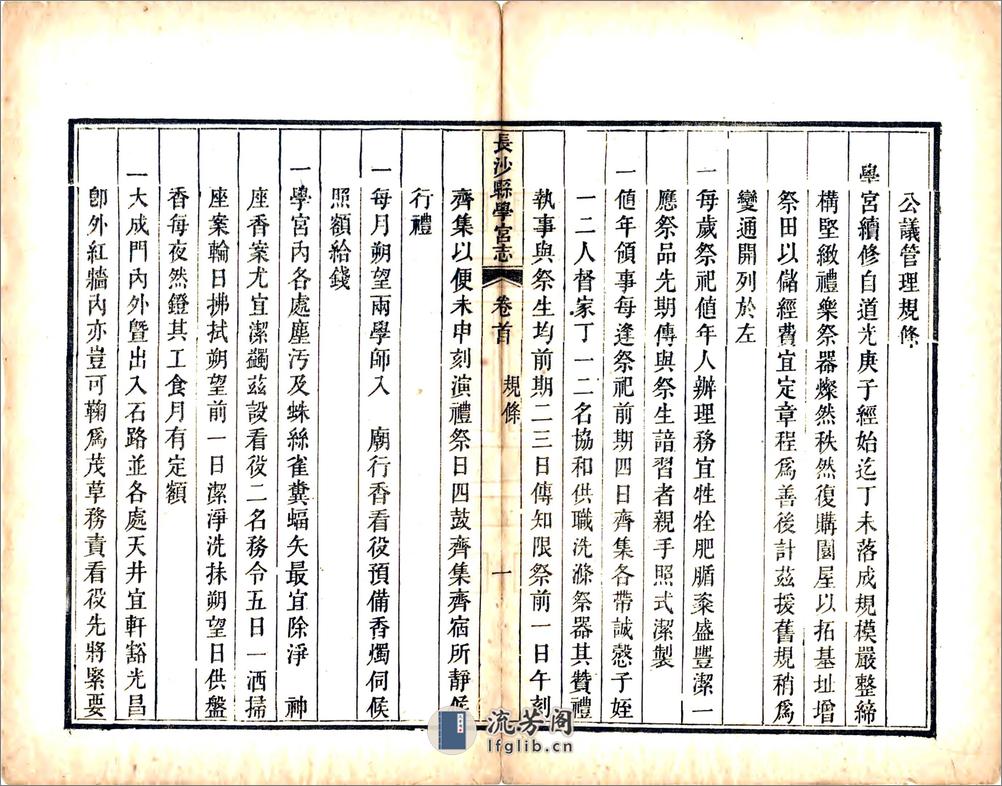 公議管理規條
學宮續修自道光庚子經始迄丁未落成規模嚴整締
構堅緻禮樂祭器燦然秩然復購園屋以拓基址增
祭田以儲經費宜定章程爲善後計茲援舊規稍爲
變通開列於左
一每歲祭祀値年人辦理務宜牲牷肥腯粢盛豐潔一
應祭品先期傳與祭生諳習者親手照式潔製
一値年領事每逢祭祀前期四日齊集各帶誠慤子姪
一二人督家丁一二名協和供職洗滌祭器其贊禮
執事與祭生均前期二三日傳知限祭前一日午刻
長沙縣學宮志
卷首
規條
一
齊集以便未申刻演禮祭日四鼓齊集齊宿所靜候
行禮
一每月朔望兩學師入 廟行香看役預備香燭伺候
照額給錢
一學宮內各處塵汚及蛛絲雀糞蝠矢最宜除淨 神
座香案尤宜潔蠲茲設看役二名務令五日一洒掃
座案輪日拂拭朔望前一日潔淨洗抹朔望日供盤
香每夜然鐙其工食月有定額
一大成門內外曁出入石路並各處天井宜軒豁光昌
卽外紅牆內亦豈可鞠爲茂草務責看役先將緊要
流芳阁
lfglib.cn